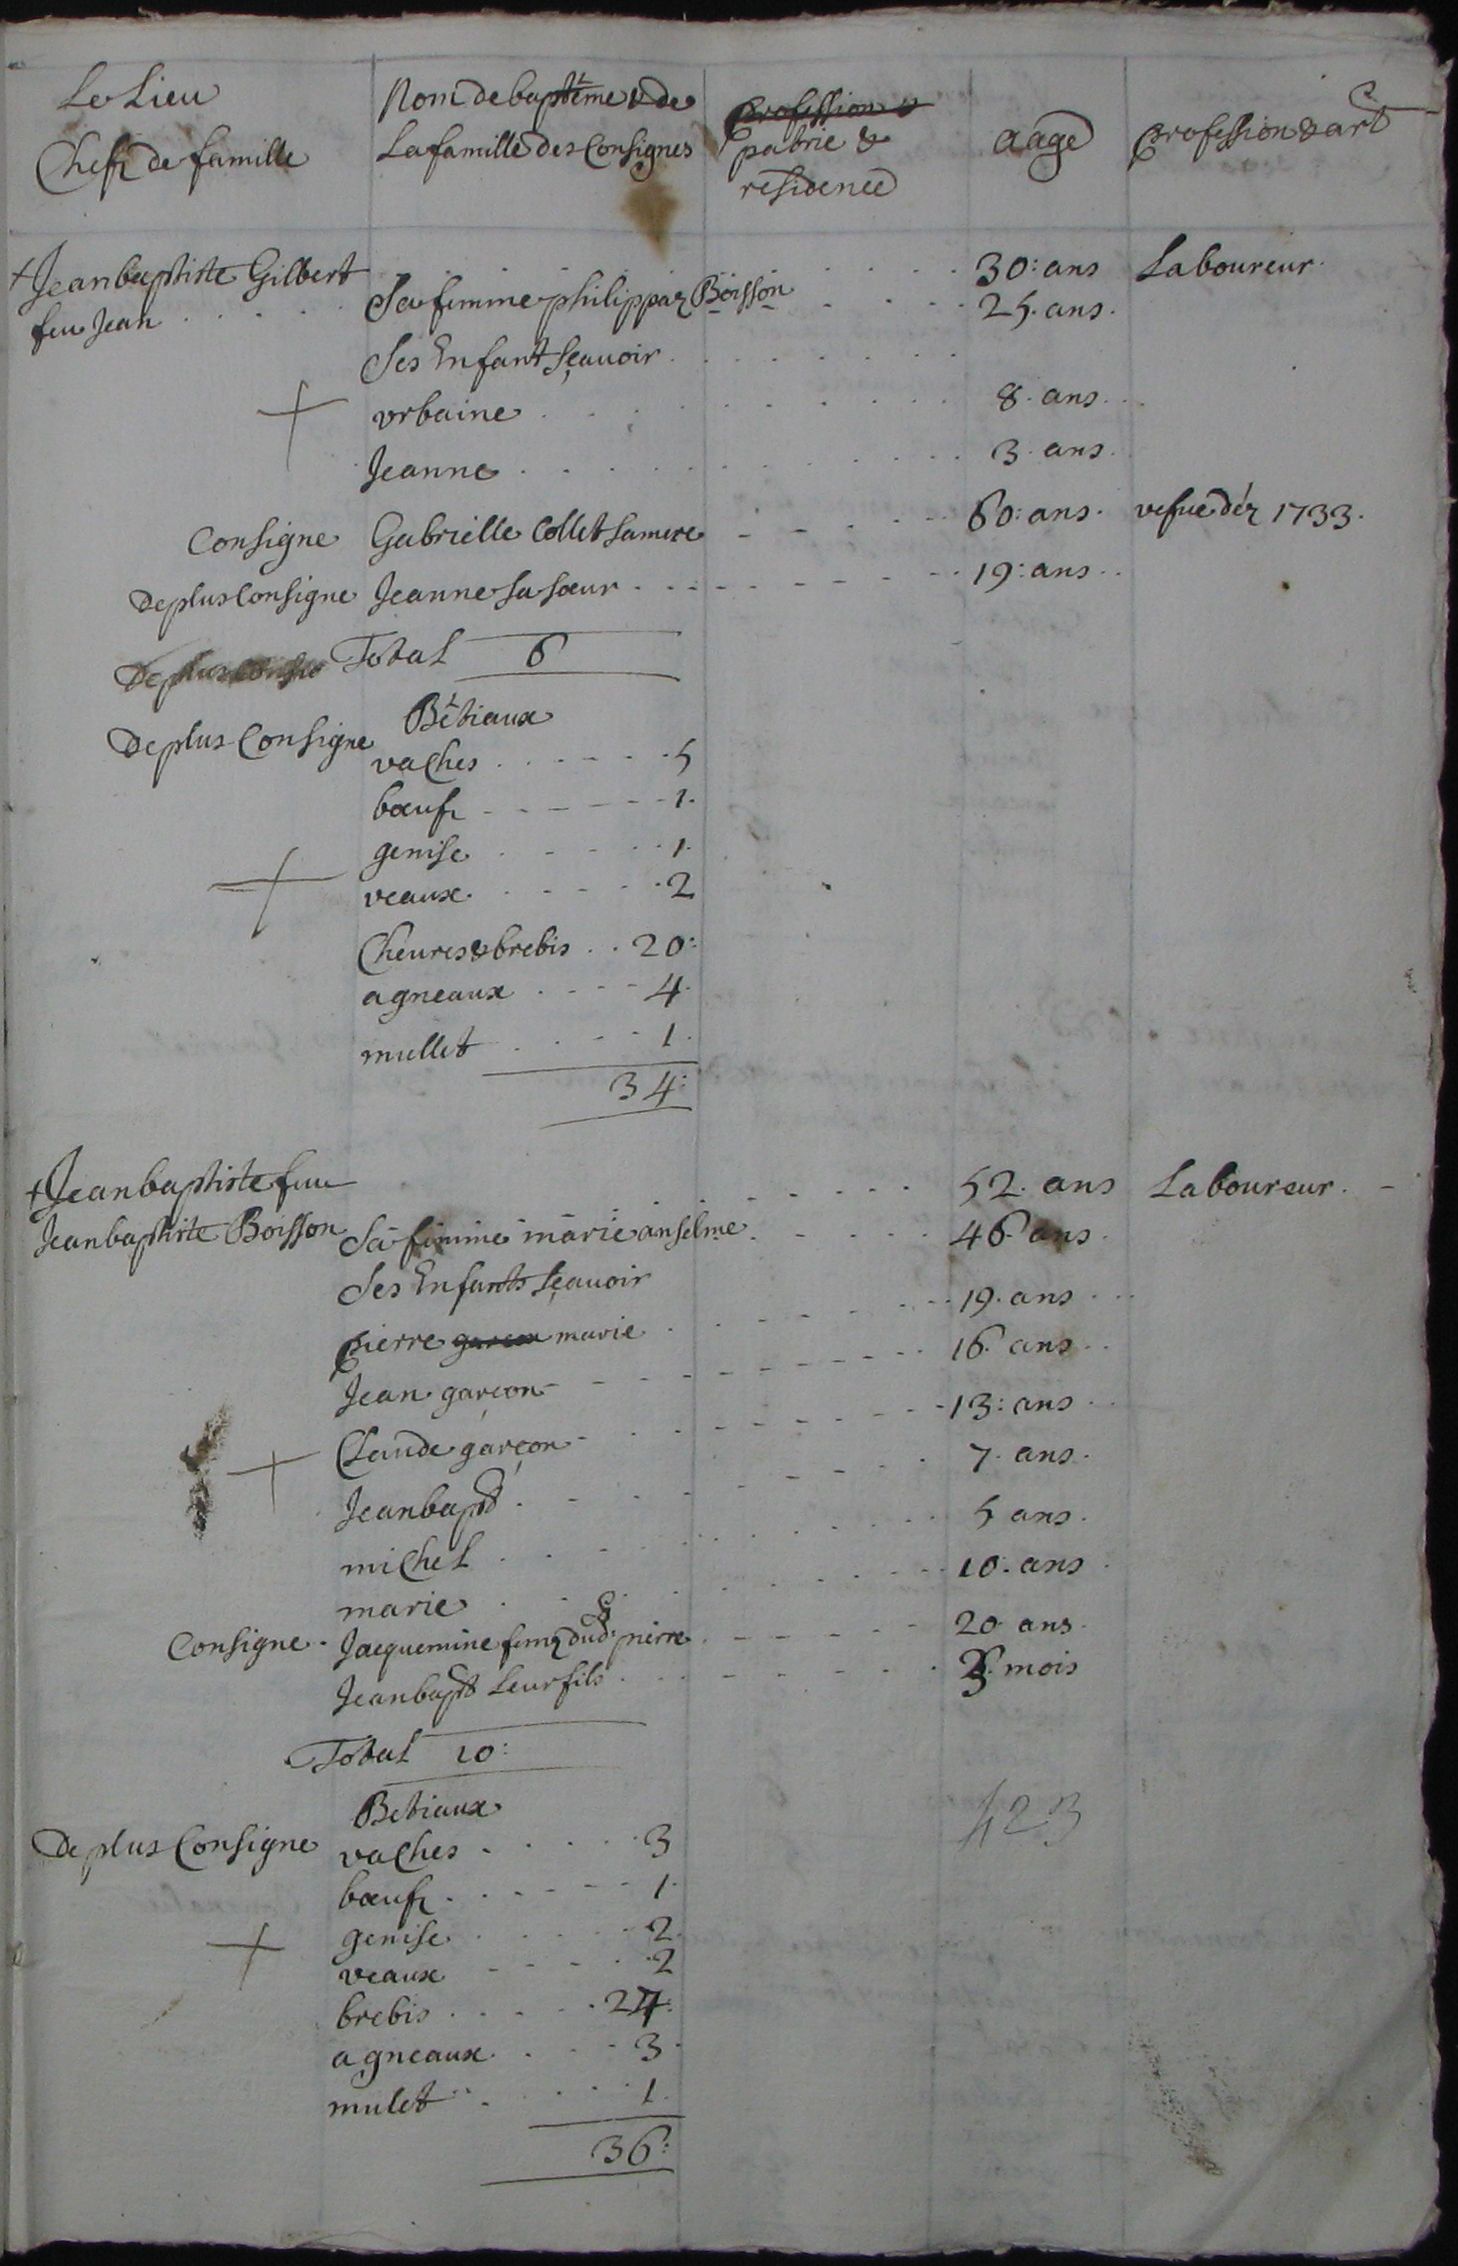 Le Lieu
Chefz de famille
Nom de baptême & de
La famille des Consignes
profession &
patrie &
residence
aage
profession & art
+ Jeanbaptiste Gilbert . . . 30: ans Laboureur.
feu Jean . . . . Sa femme philippaz Boisson . . . 25. ans.
Ses Enfant sçavoir . . . . . .
vrbaine . . . . . . 8. ans . . .
Jeanne . . . . . . 3. ans.
Consigne Gabrielle Collet sa mere - - - - 60: ans. vefue déz 1733.
De plus Consigne Jeanne sa sœur . - - - - 19: ans . .
De plus Consig
Total 6
Bêtiaux
De plus Consigne
vaches . . . . . 5
bœufz - - - - - 1.
genise . . . . . 1.
veaux . . . . . 2
Cheures & brebis . . 20:
agneaux . . . . 4.
mullet . . . . 1.
34:
+ Jeanbaptiste feu - - - - 52. ans Laboureur. -
Jeanbaptiste Boisson Sa femme marie anselme. - - - 46. ans.
Ses Enfants sçavoir
pierre garçon marie . . . . . . 19. ans . . .
Jean garçon - - - - - - 16. ans . .
Claude garçon - . - - - - 13: ans . .
Jeanbapt . - - - - - 7. ans.
michel . . . . . . 5 ans.
marie . . . . . . 10. ans .
Consigne - Jacquemine femz dud. pierre . - - - - 20 ans.
Jeanbapt Leur fils . . - - - - 3. mois
Total 10:
Betiaux
De plus Consigne
vaches . . . . . 3
bœufz . . - - - - 1.
genise . . . . . 2.
veaux - - - . . 2
brebis . . . . . 24:
agneaux . . . . 3.
mulet . . . . 1.
36:
423